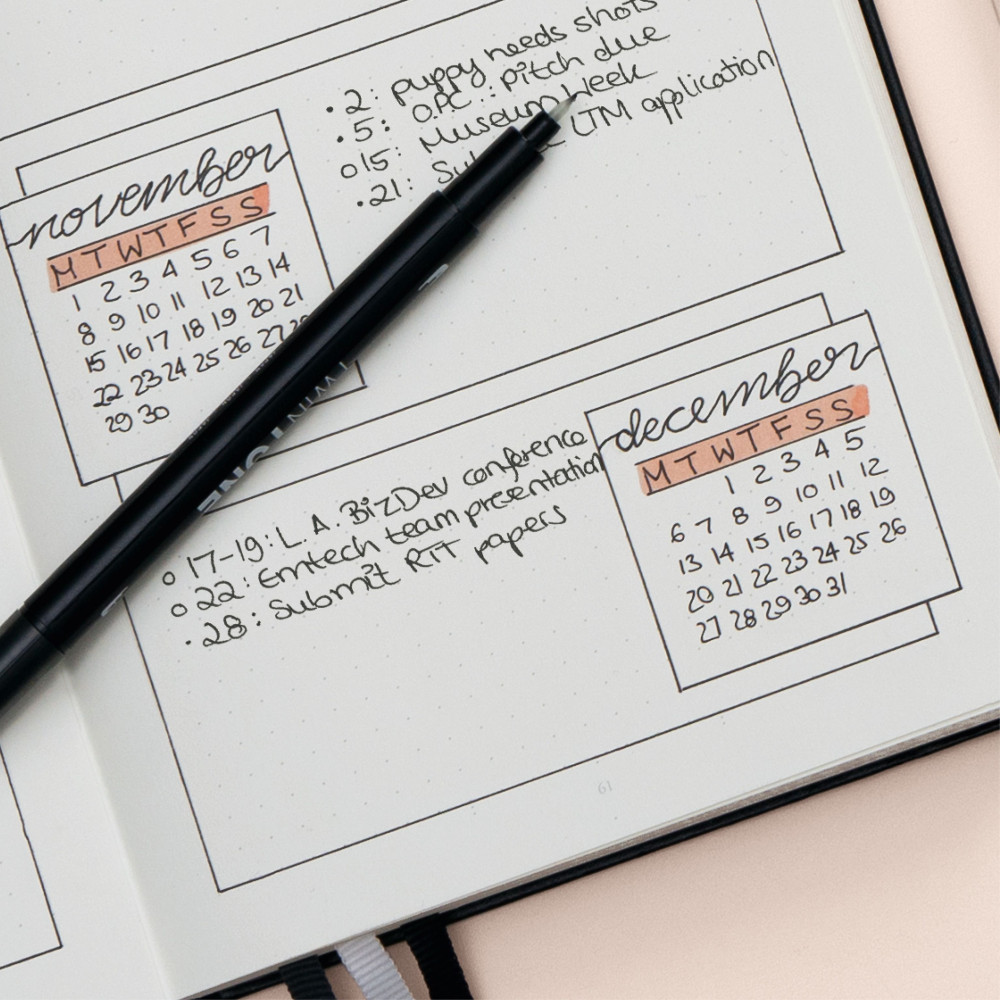 • 2: puppy needs shots
• 5: OPC: pitch due
o 15: Museum Week
• 21: LTM application
november
M T W T F S S
1 2 3 4 5 6 7
8 9 10 11 12 13 14
15 16 17 18 19 20 21
22 23 24 25 26 27 28
29 30
TWINTONE
december
M T W T F S S
1 2 3 4 5
6 7 8 9 10 11 12
13 14 15 16 17 18 19
20 21 22 23 24 25 26
27 28 29 30 31
o 17-19: L.A. BizDev conference
o 22: Emtech team presentation
• 28: Submit RIT papers
61